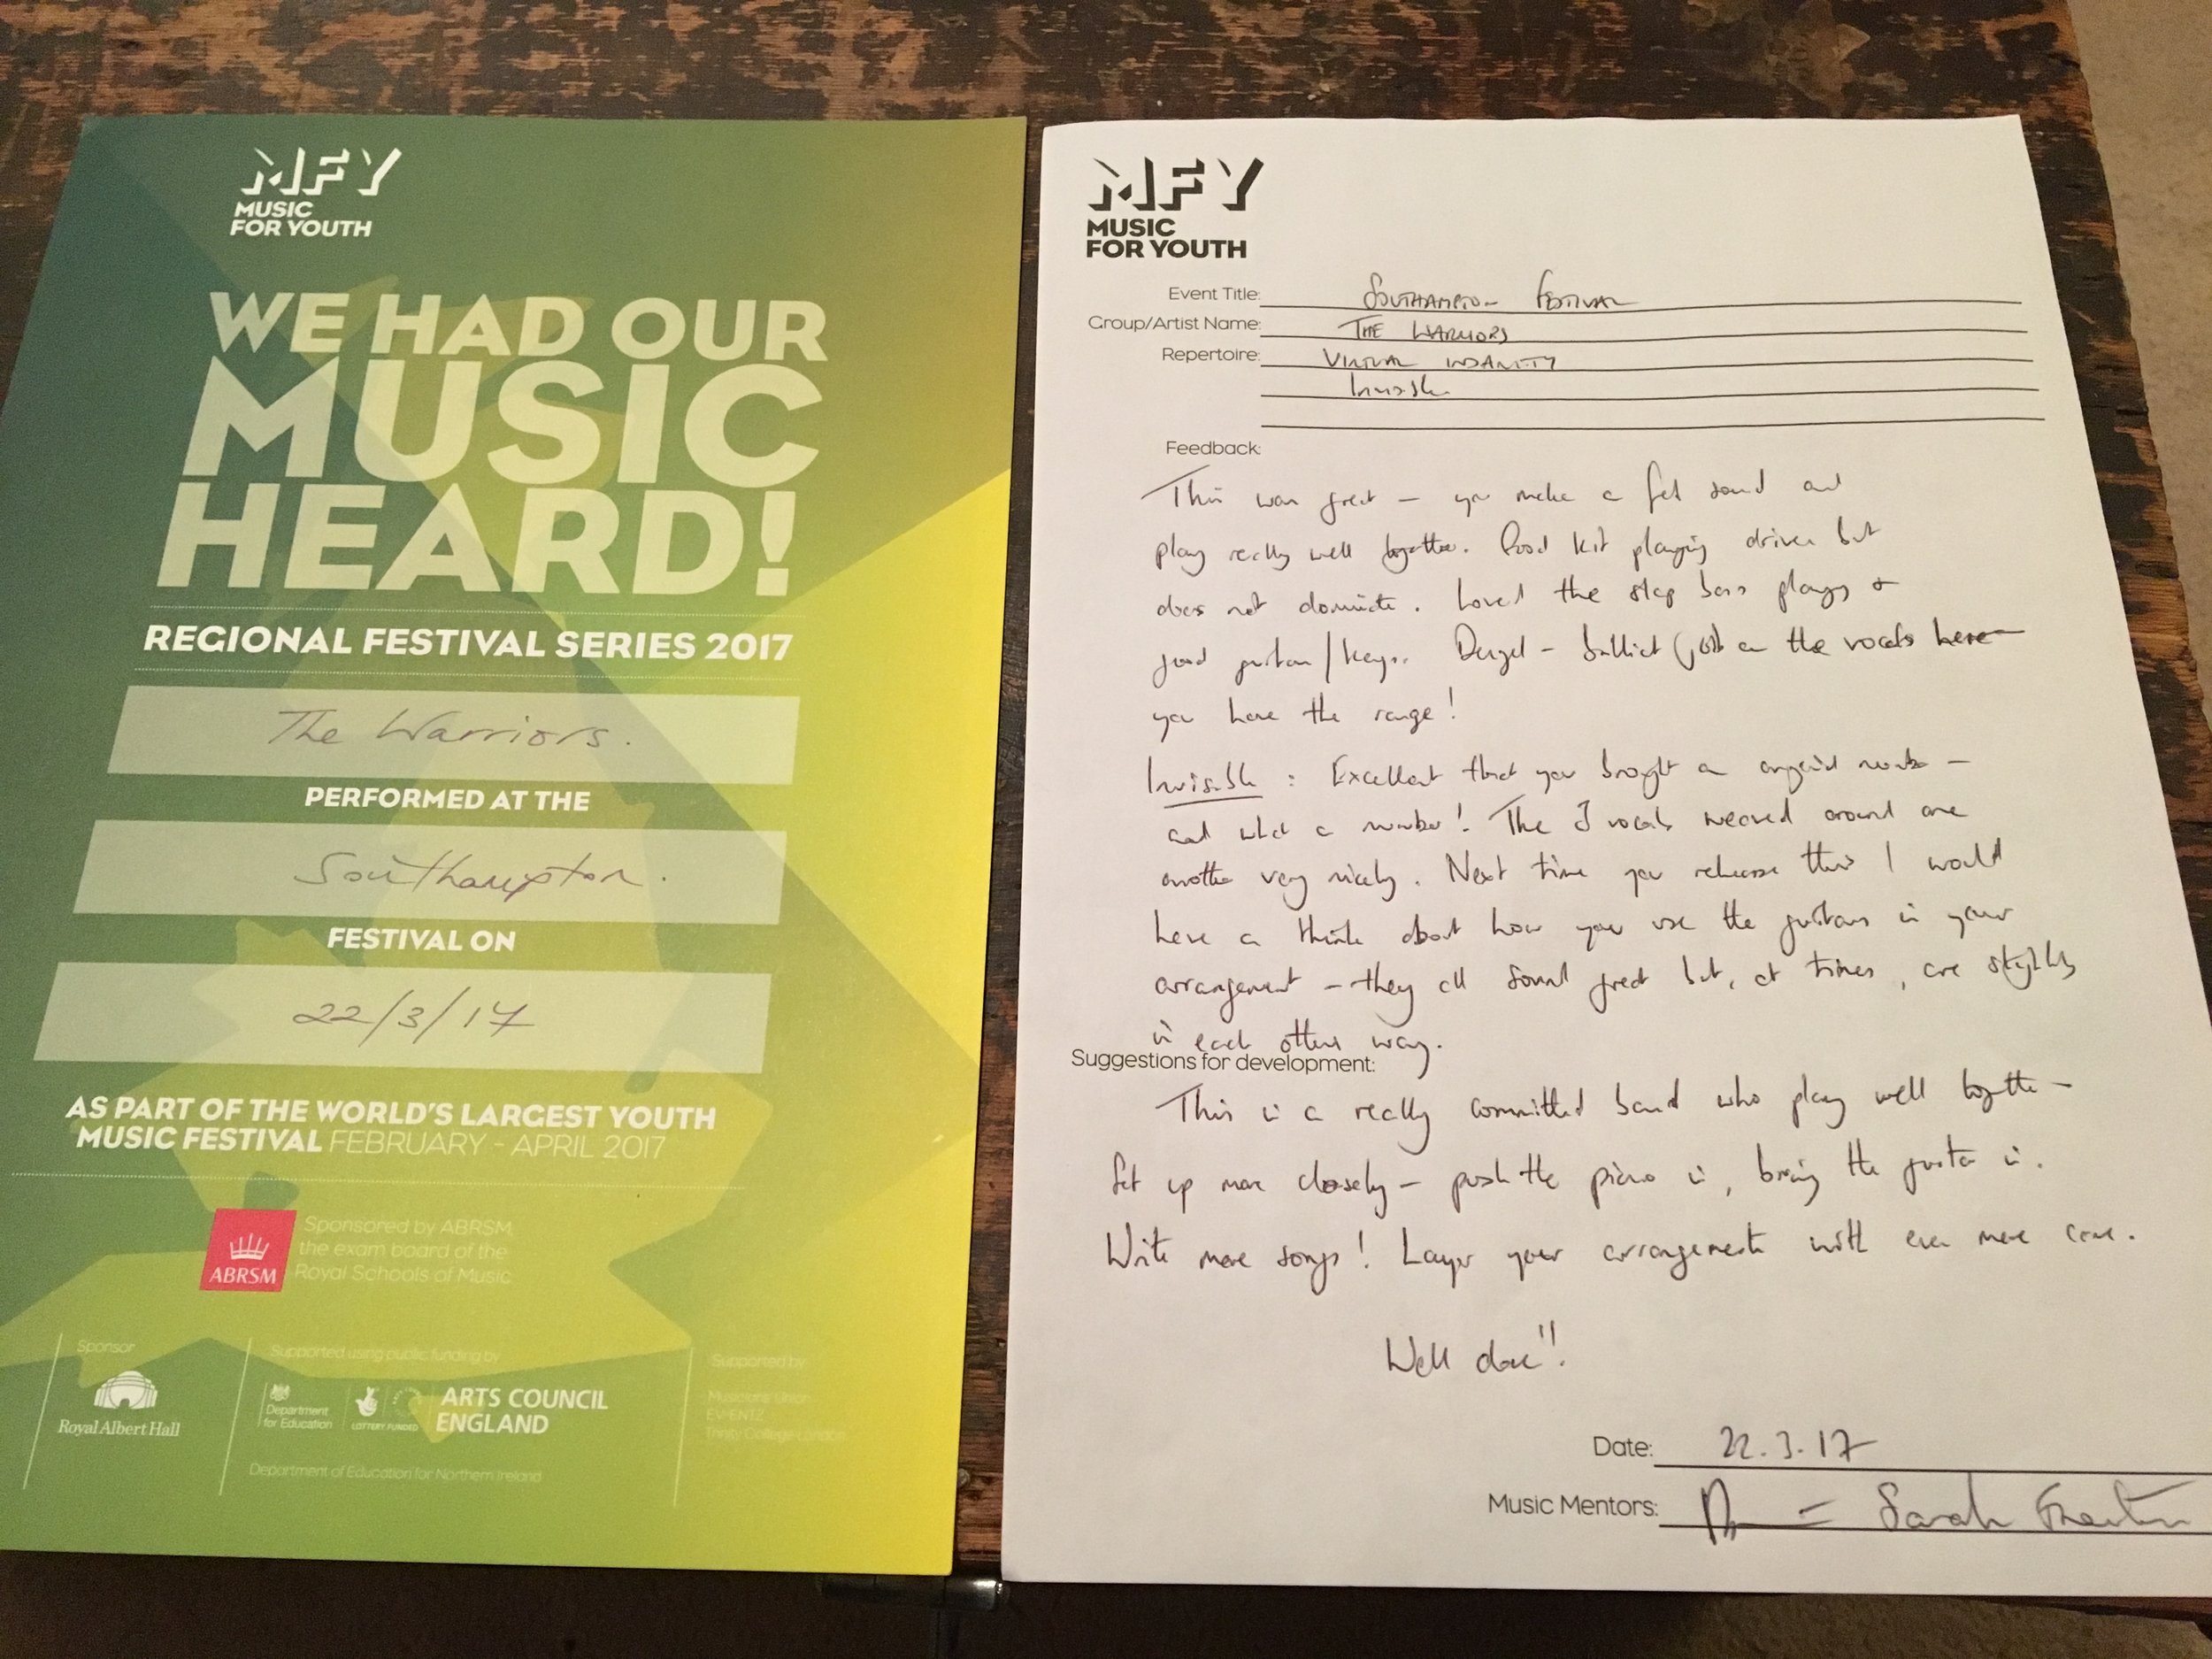 MFY
MUSIC
FOR YOUTH
WE HAD OUR
MUSIC
HEARD!
REGIONAL FESTIVAL SERIES 2017
The Warriors.
PERFORMED AT THE
Southampton.
FESTIVAL ON
22/3/17
AS PART OF THE WORLD'S LARGEST YOUTH
MUSIC FESTIVAL FEBRUARY - APRIL 2017
ABRSM
Sponsored by ABRSM
the exam board of the
Royal Schools of Music
Sponsor
Royal Albert Hall
Supported using public funding by
Department
for Education
LOTTERY FUNDED
ARTS COUNCIL
ENGLAND
Department of Education for Northern Ireland
Supported by
Musicians Union
Trinity College London
MFY
MUSIC
FOR YOUTH
Event Title: SOUTHAMPTON FESTIVAL
Group/Artist Name: THE WARRIORS
Repertoire: VIRTUAL INSANITY
Invisible
Feedback:
This was great - you make a fat sound and
play really well together. Good kit playing drives but
does not dominate. Loved the slap bass playing +
good guitar/keys. - brilliant job on the vocals here
you have the range!
Invisible: Excellent that you brought an original number -
and what a number! The 3 vocals weaved around one
another very nicely. Next time you rehearse this I would
have a think about how you use the guitars in your
arrangement - they all sound great but, at times, are slightly
in each others way.
Suggestions for development:
This is a really committed band who play well together -
Set up more closely - push the piano in, bring the guitar in.
Write more songs! Layer your arrangements with even more care.
Well done!!
Date: 22.3.17
Music Mentors: = Sarah